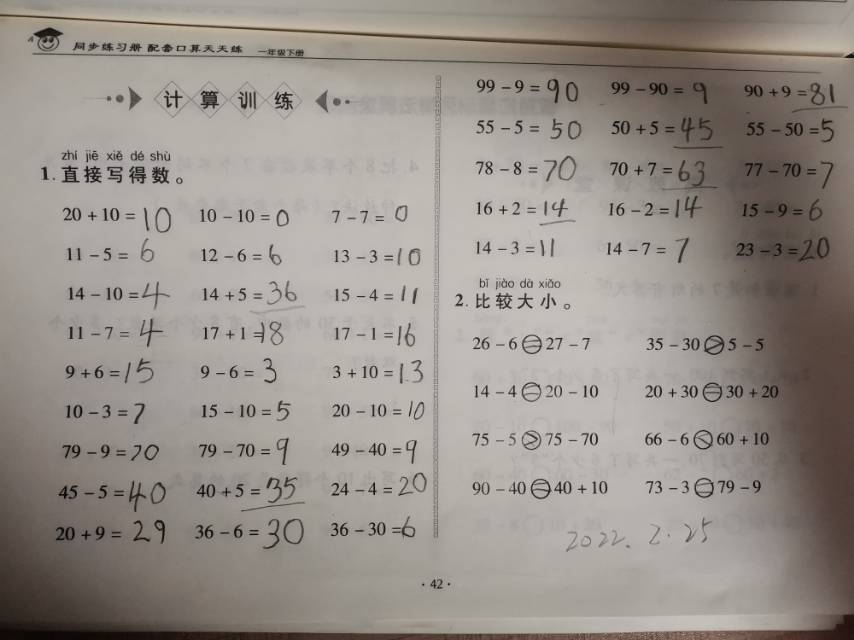 同步练习册 配套口算天天练 一年级下册
计算训练
zhí jiē xiě dé shù
1. 直接写得数。
20 + 10 = 10 10 - 10 = 0 7 - 7 = 0
11 - 5 = 6 12 - 6 = 6 13 - 3 = 10
14 - 10 = 4 14 + 5 = 36 15 - 4 = 11
11 - 7 = 4 17 + 1 = 18 17 - 1 = 16
9 + 6 = 15 9 - 6 = 3 3 + 10 = 13
10 - 3 = 7 15 - 10 = 5 20 - 10 = 10
79 - 9 = 70 79 - 70 = 9 49 - 40 = 9
45 - 5 = 40 40 + 5 = 35 24 - 4 = 20
20 + 9 = 29 36 - 6 = 30 36 - 30 = 6
99 - 9 = 90 99 - 90 = 9 90 + 9 = 81
55 - 5 = 50 50 + 5 = 45 55 - 50 = 5
78 - 8 = 70 70 + 7 = 63 77 - 70 = 7
16 + 2 = 14 16 - 2 = 14 15 - 9 = 6
14 - 3 = 11 14 - 7 = 7 23 - 3 = 20
bǐ jiào dà xiǎo
2. 比较大小。
26 - 6 = 27 - 7 35 - 30 > 5 - 5
14 - 4 = 20 - 10 20 + 30 = 30 + 20
75 - 5 > 75 - 70 66 - 6 < 60 + 10
90 - 40 = 40 + 10 73 - 3 = 79 - 9
2022. 2. 25
· 42 ·